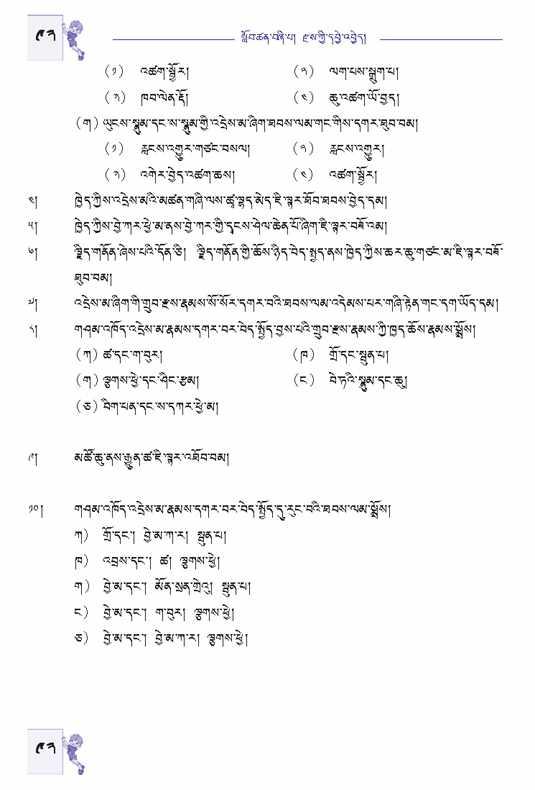 ༩༣
སློབ་ཚན་བཞི་པ། རྫས་ཀྱི་དབྱེ་འབྱེད།
(༡) འཚག་སྦྱོར། (༢) ལག་པས་སྒྲུག་པ།
(༣) ཁབ་ལེན་རྡོ། (༤) ཆུ་འཚག་ཡོ་བྱད།
(ག) ཡུངས་སྣུམ་དང་ས་སྣུམ་གྱི་འདྲེས་མ་ཞིག་ཐབས་ལམ་གང་གིས་དགར་ཐུབ་བམ།
(༡) རླངས་འགྱུར་གཙང་བསལ། (༢) རླངས་འགྱུར།
(༣) འགེར་བྱེད་འཚག་ཆས། (༤) འཚག་སྦྱོར།
༤། ཁྱེད་ཀྱིས་འདྲེས་མའི་མཚན་གཞི་ལས་ཚྭ་ལྷད་མེད་ཇི་ལྟར་ཐོབ་ཐབས་བྱེད་དམ།
༥། ཁྱེད་ཀྱིས་བྱེ་ཀར་ཕྱེ་མ་ནས་བྱེ་ཀར་གྱི་དྭངས་ཤེལ་ཆེན་པོ་ཞིག་ཇི་ལྟར་བཟོ་འམ།
༦། ལྡིད་གནོན་ཞེས་པའི་དོན་ཅི། ལྡིད་གནོན་གྱི་ཆོས་ཉིད་བེད་སྤྱད་ནས་ཁྱེད་ཀྱིས་ཆར་ཆུ་གཙང་མ་ཇི་ལྟར་བཟོ་
ཐུབ་བམ།
༧། འདྲེས་མ་ཞིག་གི་གྲུབ་རྫས་རྣམས་སོ་སོར་དགར་བའི་ཐབས་ལམ་འདེམས་པར་གཞི་རྟེན་གང་དག་ཡོད་དམ།
༨། གཤམ་འཁོད་འདྲེས་མ་རྣམས་དགར་བར་བེད་སྤྱོད་བྱས་པའི་གྲུབ་རྫས་རྣམས་ཀྱི་ཁྱད་ཆོས་རྣམས་སྨྲོས།
(ཀ) ཚ་དང་ག་བུར། (ཁ) གྲོ་དང་སྦུན་པ།
(ག) ལྕགས་ཕྱེ་དང་ཤིང་རྩམ། (ང) བེ་ཏའི་སྣུམ་དང་ཆུ།
(ཅ) བིག་པན་དང་ས་དཀར་ཕྱེ་མ།
༩། མཚོ་ཆུ་ནས་རྒྱུན་ཚ་ཇི་ལྟར་འཐོབ་བམ།
༡༠། གཤམ་འཁོད་འདྲེས་མ་རྣམས་དགར་བར་བེད་སྤྱོད་དུ་རུང་བའི་ཐབས་ལམ་སྨྲོས།
ཀ) གྲོ་དང་། བྱེ་མ་ཀ་ར། སྦུན་པ།
ཁ) འབྲས་དང་། ཚ། ལྕགས་ཕྱེ།
ག) བྱེ་མ་དང་། མོན་སྲན་གྲེའུ། སྦུན་པ།
ང) བྱེ་མ་དང་། ག་བུར། ལྕགས་ཕྱེ།
ཅ) བྱེ་མ་དང་། བྱེ་མ་ཀ་ར། ལྕགས་ཕྱེ།
༩༣